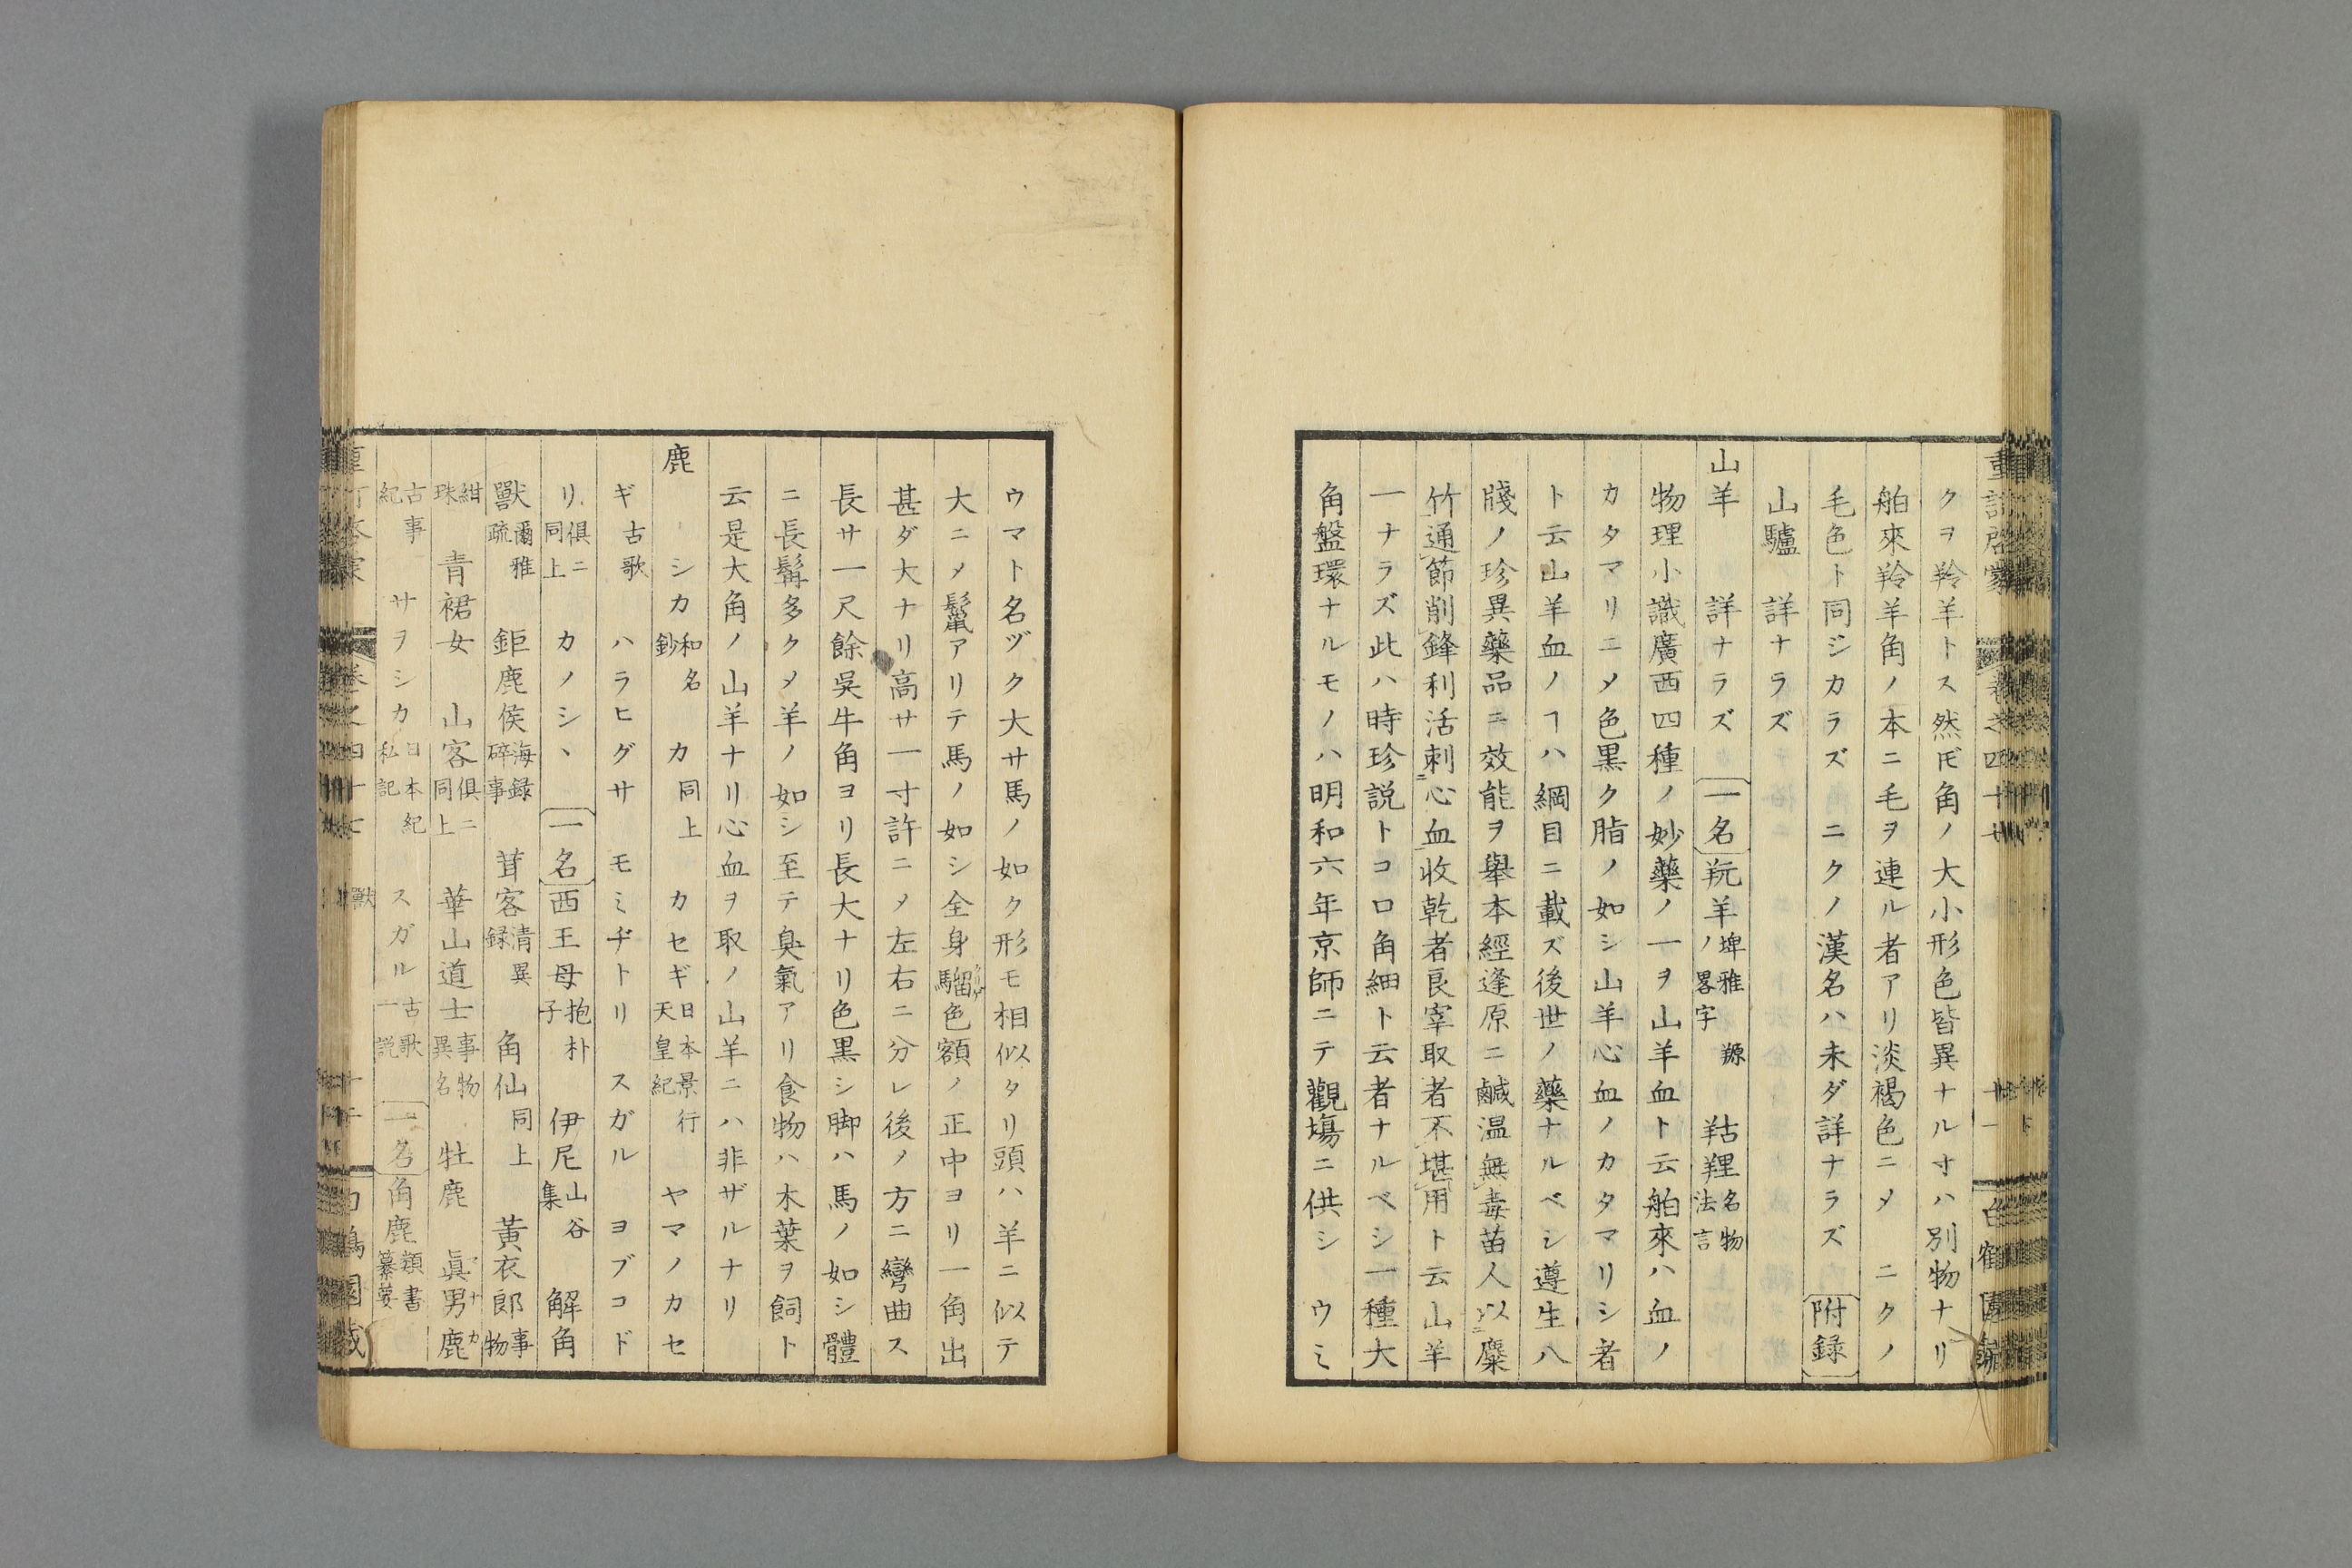 クヲ羚羊トス然𪜈角ノ大小形色皆異ナル寸ハ別物ナリ
舶來羚羊角ノ本ニ毛ヲ連ル者アリ淡褐色ニメ ニクノ
毛色ト同ジカラズ ニクノ漢名ハ未ダ詳ナラズ 附録
山驢 詳ナラズ
山羊 詳ナラズ 一名 羱羊 埤雅 羱ノ畧字 羖䍽 名物法言
物理小識廣西四種ノ妙藥ノ一ヲ山羊血ト云舶來ハ血ノ
カタマリニメ色黒ク脂ノ如シ山羊心血ノカタマリシ者
ト云山羊血ノヿハ綱目ニ載ズ後世ノ藥ナルベシ遵生八
牋ノ珍異藥品ニ效能ヲ舉本經逢原ニ鹹温無毒苗人以麋
竹通節削鋒利活刺心血收乾者良宰取者不堪用ト云山羊
一ナラズ此ハ時珍説トコロ角細ト云者ナルベシ一種大
角盤環ナルモノハ明和六年京師ニテ觀塲ニ供シ ウミ
ウマト名ヅク大サ馬ノ如ク形モ相似タリ頭ハ羊ニ似テ
大ニメ鬣アリテ馬ノ如シ全身騮色額ノ正中ヨリ一角出
甚ダ大ナリ高サ一寸許ニメ左右ニ分レ後ノ方ニ彎曲ス
長サ一尺餘呉牛角ヨリ長大ナリ色黒シ脚ハ馬ノ如シ體
ニ長髯多クメ羊ノ如シ至テ臭氣アリ食物ハ木葉ヲ飼ト
云是大角ノ山羊ナリ心血ヲ取ノ山羊ニハ非ザルナリ
鹿 シカ 和名鈔 カ 同上 カセギ 日本景行天皇紀 ヤマノカセ
ギ 古歌 ハラヒグサ モミヂトリ スガル ヨブコド
リ 俱ニ同上 カノシヽ 一名 西王母 抱朴子 伊尼 山谷集 解角
獸 爾雅疏 鉅鹿侯 海録碎事 茸客 清異録 角仙 同上 黃衣郎 事物
紺珠 青裙女 山客 俱ニ同上 華山道士 事物異名 牡鹿 眞男鹿
古事紀 サヲシカ 日本紀私記 スガル 古歌一説 一名 角鹿 類書纂要